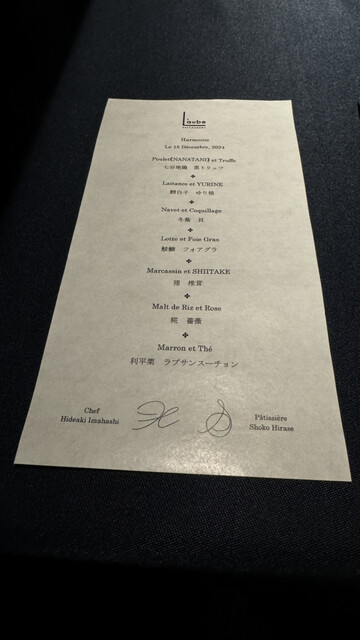 L'aube
RESTAURANT
Harmonie
Le 15 Décembre, 2024
Poulet【NANATANI】et Truffe
七谷地鶏 黒トリュフ
Laitance et YURINE
鱈白子 ゆり根
Navet et Coquillage
冬蕪 貝
Lotte et Foie Gras
鮟鱇 フォアグラ
Marcassin et SHIITAKE
猪 椎茸
Malt de Riz et Rose
糀 薔薇
Marron et Thé
利平栗 ラプサンスーチョン
Chef
Hideaki Imahashi
Pâtissière
Shoko Hirase